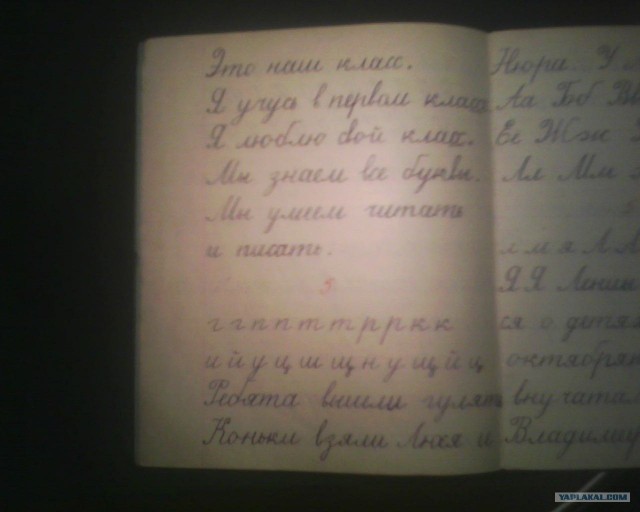 Это наш класс.
Я учусь в первом классе
Я люблю свой класс.
Мы знаем все буквы.
Мы умеем читать
и писать.
5
г г п п т т р р к к
и й у ц ш щ н у щ й ц
Ребята вышли гулять
Коньки взяли Лнея и
Нюра У
Аа Бб Вв
Ее Жж
Лл Мм
л м я Л Л
Я Я Ленин
ся о детях
октябрят
внучата
Владимир
YAPLAKAL.COM